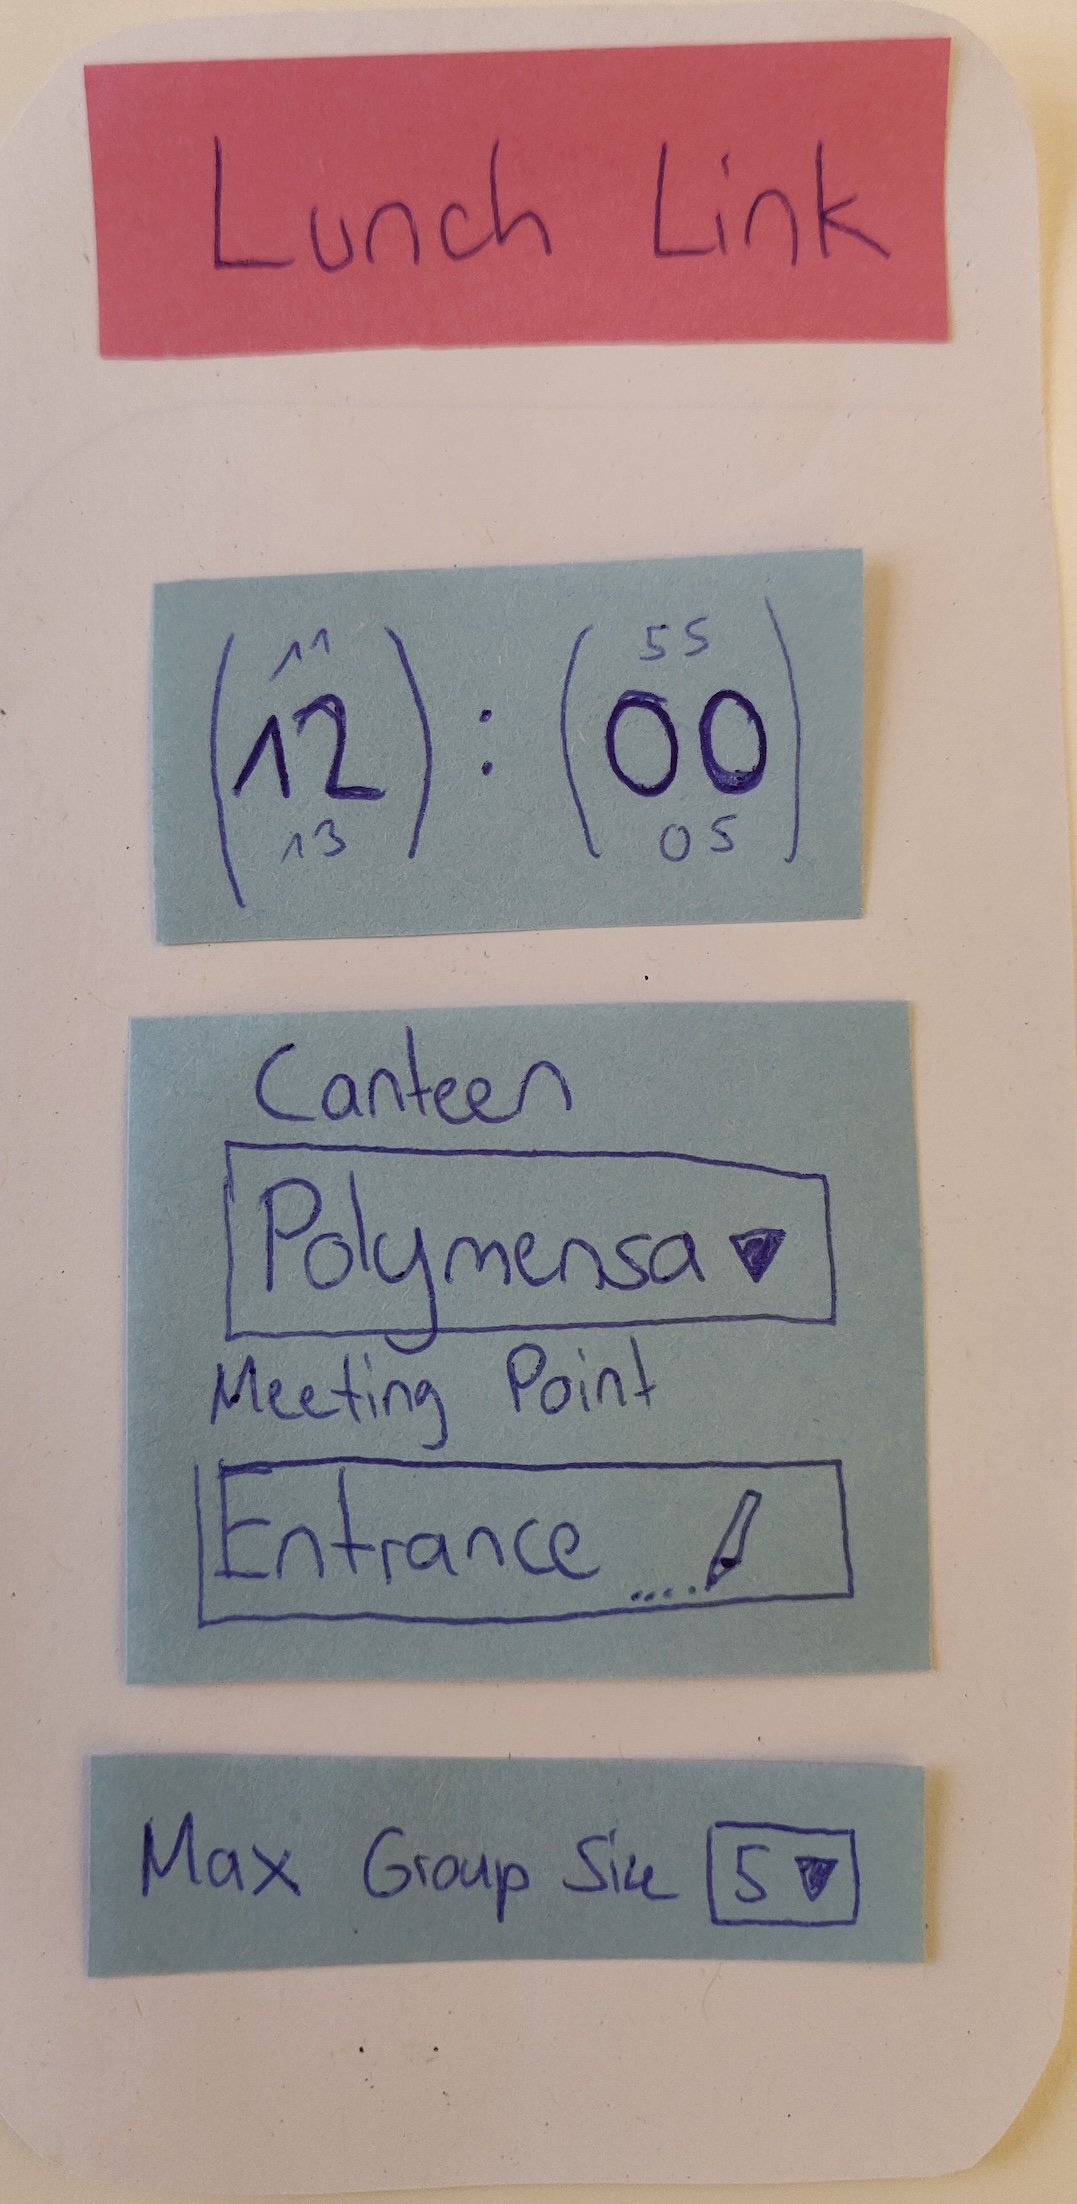 Lunch Link
11 55
12 : 00
13 05
Canteen
Polymensa
Meeting Point
Entrance
Max Group Size 5